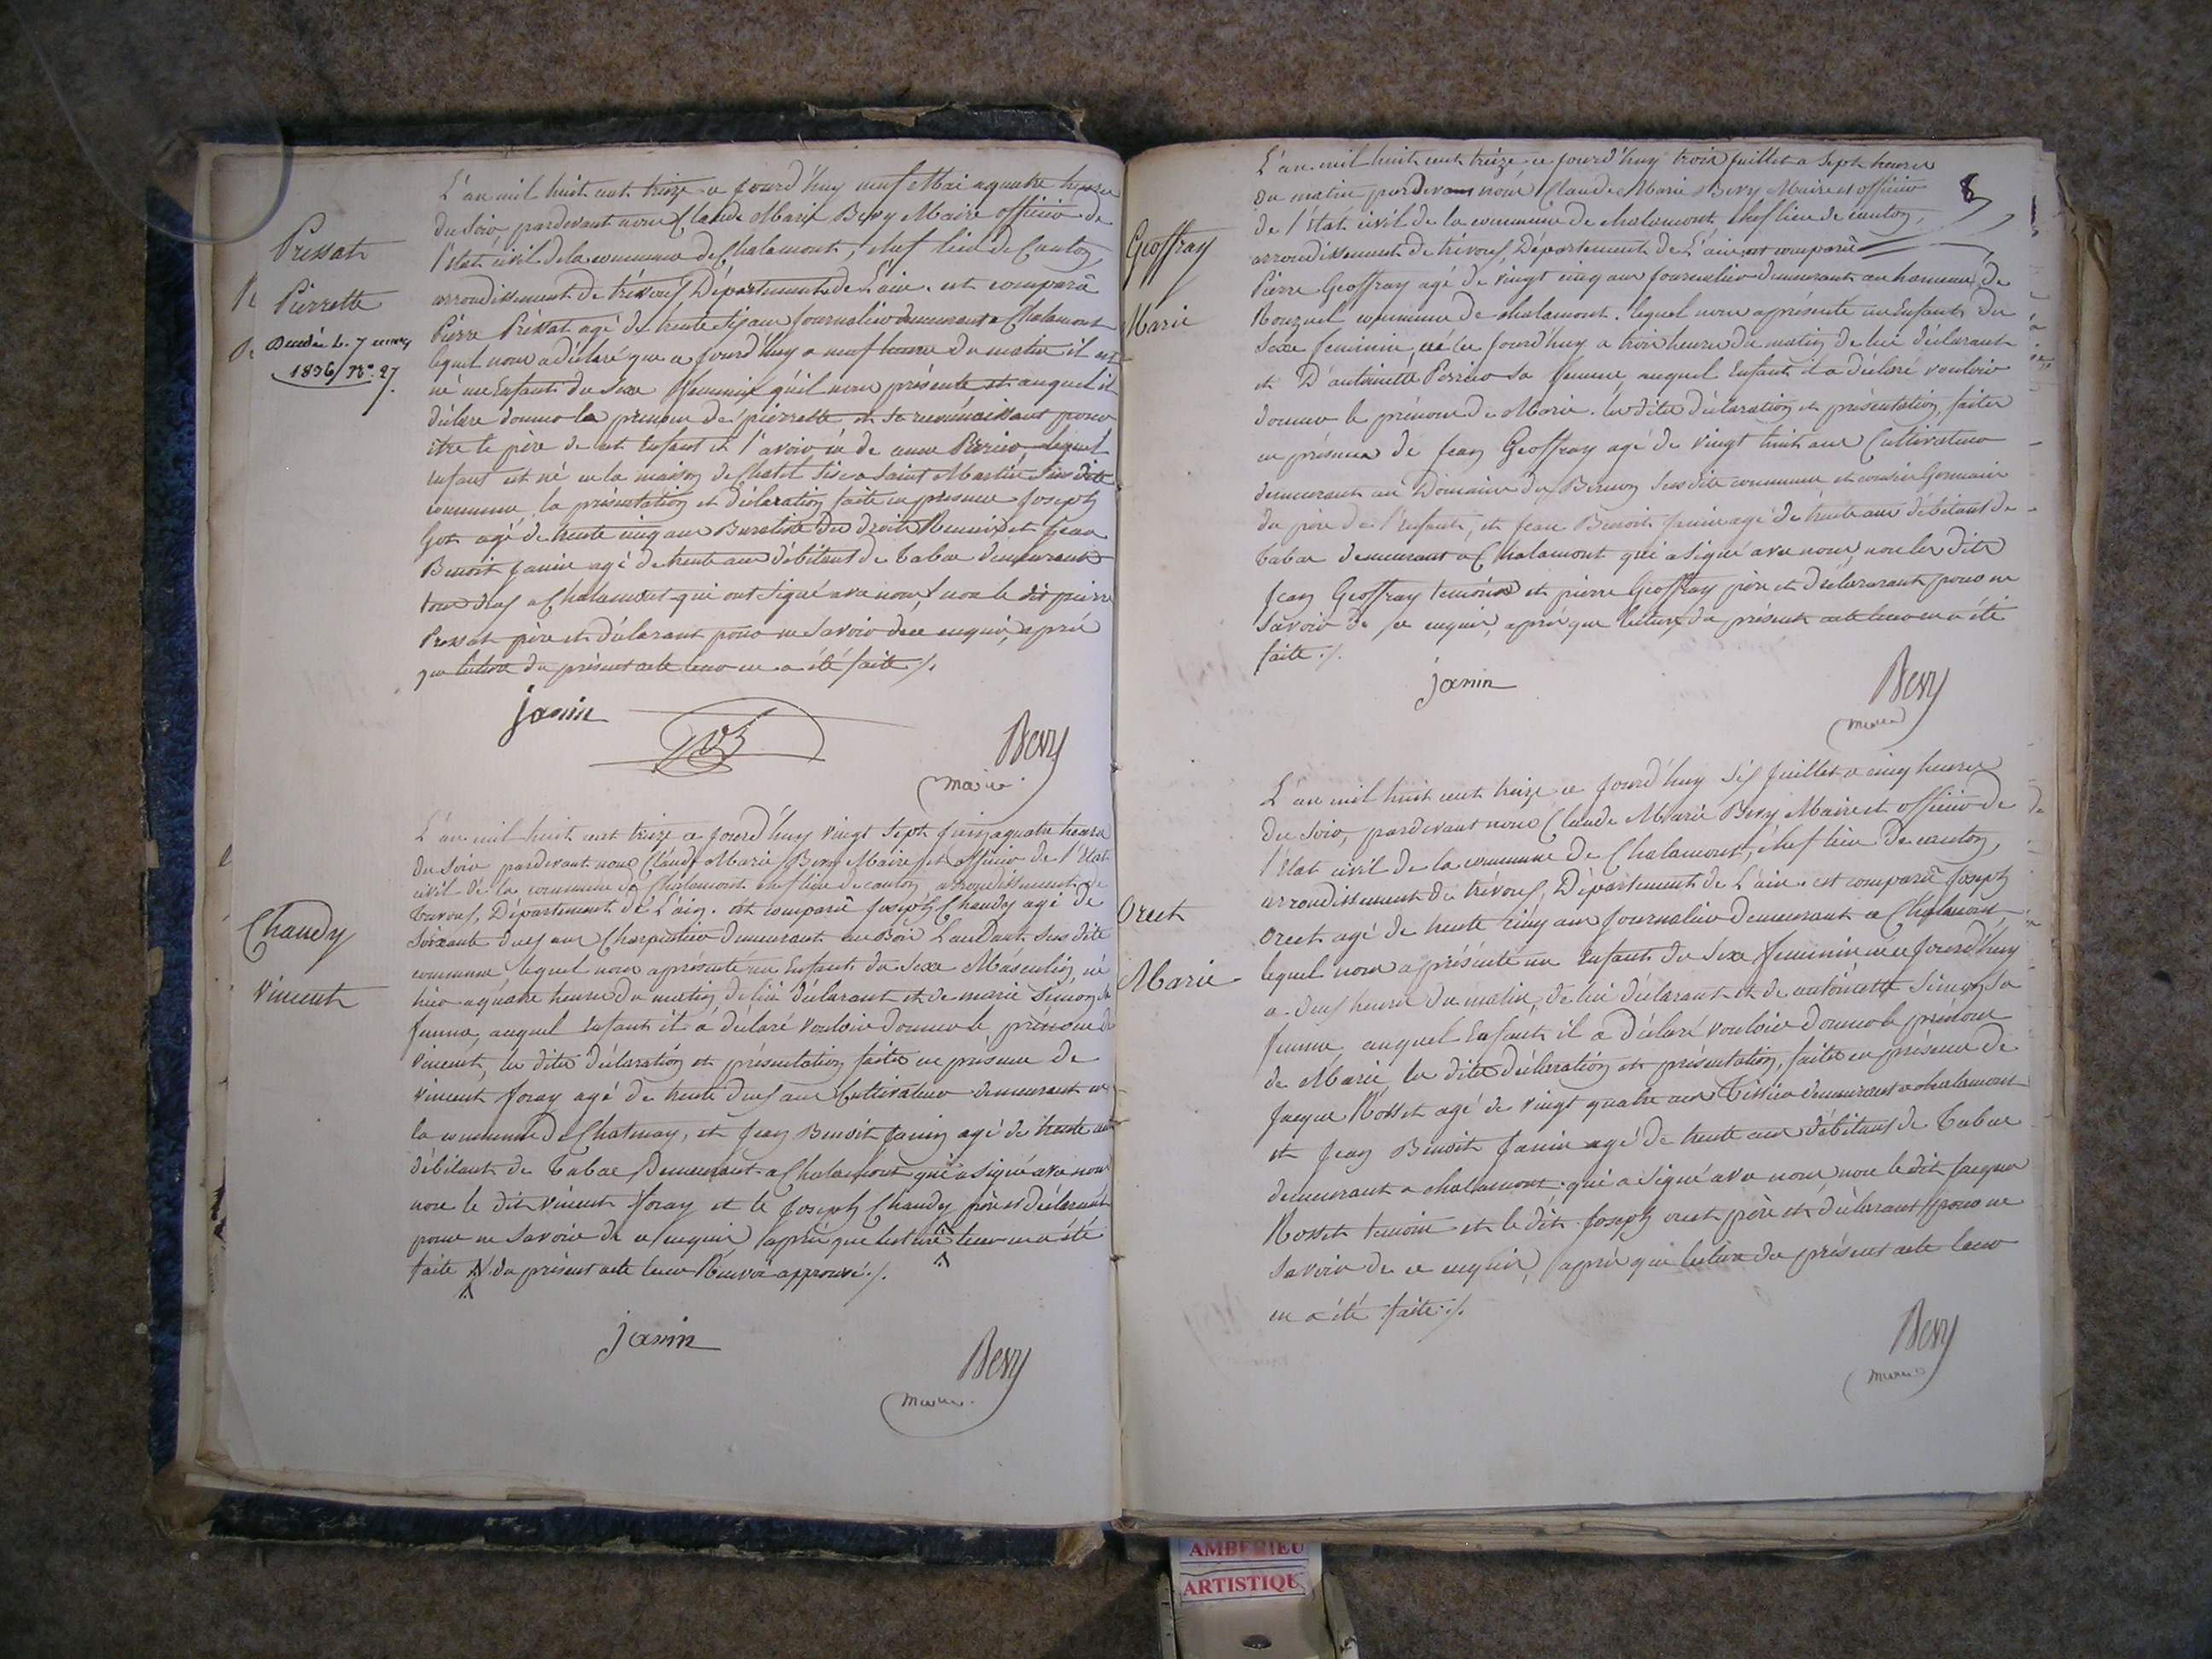 Pressat
Pierrette
Décédée le 7 
1836 N°. 27
L'an mil huit cent treize ce jourd'huy neuf Mai a quatre heures
du soir pardevant nous Claude Marie Bevy Maire officier de
l'état civil de la commune de Chalamont, chef lieu de Canton,
arrondissement de trévoux Département de L'ain. est comparû
Pierre Préssat agé de trente six ans journalier demeurant a Chalamont
lequel nous a déclaré que ce jourd'huy a neuf heures du matin il est
né un Enfant du sexe féminin qu'il nous présente et auquel il
déclare donner le prénom de pierrette et se reconnaissant pour
être le père de cet Enfant et l'avoir eu de anne Perrier, lequel
enfant est né en la maison de Chatel sise a Saint Martin Sus dite
commune, la présentation et déclaration faite en présence Joseph
Got agé de trente cinq ans Buraliste des droits Réunis et Jean
Benoit Janin agé de trente ans débitant de tabac demeurant
tous deux a Chalamont qui ont signé avec nous, non le dit pierre
Pressat père et déclarant pour ne savoir de ce enquis, après
que lecture du présent acte leur en a été faite ./.
janin
Bevy
maire
Chaudy
Vincent
L'an mil huit cent treize ce jourd'huy vingt sept juin a quatre heures
du soir pardevant nous Claude Marie Bevy Maire et officier de l'état
civil de la commune de Chalamont chef lieu de canton arrondissement de
trévoux, Département de L'ain. est comparû Joseph Chaudy agé de
soixante deux ans Charpentier demeurant au Bois Laudant sus dite
commune lequel nous a présenté un Enfant du Sexe Masculin, né
hier a quatre heures du matin de lui déclarant et de marie Simon sa
femme, auquel Enfant il a déclaré vouloir donner le prénom de
Vincent, les dites déclaration et présentation faites en présence de
Vincent foray agé de trente deux ans Cultivateur demeurant en
la commune de Chatenay, et Jean Benoit Janin agé de trente ans
débitant de Tabac Demeurant a Chalamont qui a signé avec nous
non le dit vincent foray et le Joseph Chaudy père et déclarant
pour ne savoir de ce enquis, après que lecture leur en a été
faite du présent acte leur Renvoi approuvé ./.
janin
Bevy
maire
8
Geoffray
Marie
L'an mil huit cent treize ce jourd'huy trois juillet a sept heures
du matin pardevant nous Claude Marie Bevy Maire et officier
de l'état civil de la commune de chalamont chef lieu de canton,
arrondissement de trévoux, Département de L'ain est comparû
Pierre Geoffray agé de vingt cinq ans journalier demeurant au hameau de
Ronzuel commune de chalamont. lequel nous a présenté un Enfant du
sexe féminin, né ce jourd'huy a trois heures du matin de lui déclarant
et D'antoinette Perrier sa femme, auquel Enfant il a déclaré vouloir
donner le prénom de Marie. les dites déclaration et présentation, faites
en présence de Jean Geoffray agé de vingt huit ans Cultivateur
demeurant au Domaine du sus dite commune et cousin Germain
du père de l'enfant, et Jean Benoit Janin agé de trente ans débitant de
tabac demeurant a Chalamont qui a signé avec nous, non les dits
Jean Geoffray temoins et pierre Geoffray père et déclarant pour ne
savoir de ce enquis, après que lecture du présent acte leur en a été
faite ./.
janin
Bevy
maire
Orcet
Marie
L'an mil huit cent treize ce jourd'huy six juillet a cinq heures
du soir, pardevant nous Claude Marie Bevy Maire et officier de
l'état civil de la commune de Chalamont, chef lieu de canton,
arrondissement de trévoux, Département de L'ain. est comparû Joseph
Orcet agé de trente cinq ans journalier demeurant a Chalamont
lequel nous a présenté un Enfant du sexe féminin né ce jourd'huy
a deux heures du matin, de lui déclarant et de antoinette Simon sa
femme auquel Enfant il a déclaré vouloir donner le prénom
de Marie, les dites déclaration et présentation, faites en présence de
Jacque Rosset agé de vingt quatre ans Tissier demeurant a chalamont
et Jean Benoit Janin agé de trente ans débitant de Tabac
demeurant a chalamont. qui a signé avec nous, non le dit Jacque
Rosset temoin et le dit Joseph orcet père et déclarant pour ne
savoir de ce enquis, après que lecture du présent acte leur
en a été faite ./.
Bevy
maire
AMBERIEU
ARTISTIQU